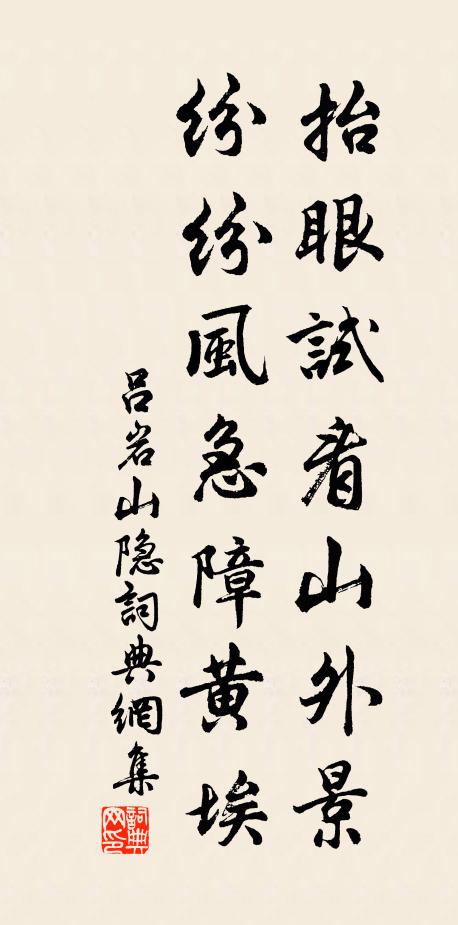 抬眼試看山外景
紛紛風急障黃埃
呂岩山隐詞典網集
詞典网印